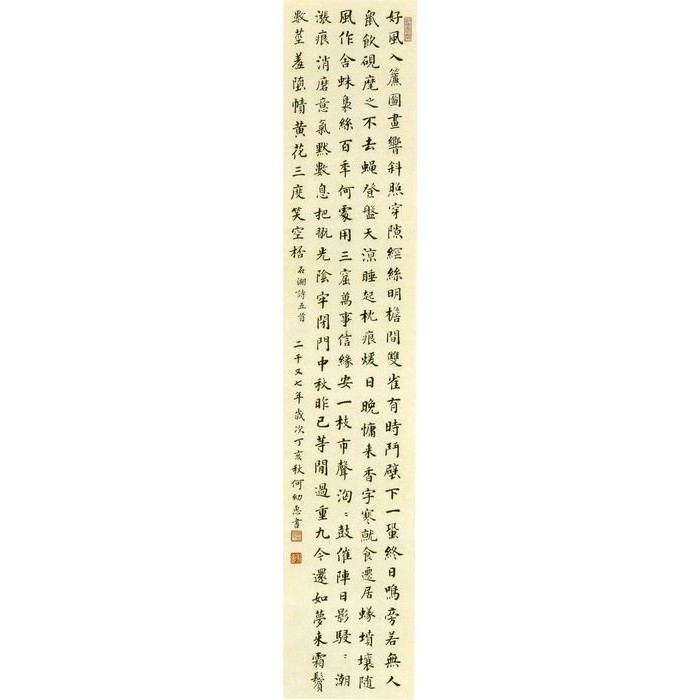 好風入簾圖畫響斜照穿隙經絲明檐間雙雀有時鬥壁下一蛩終日鳴旁若無人
鼠飲硯麾之不去蠅登盤天涼睡起枕痕煖日晚慵來香字寒就食遷居蟻墳壤隨
風作舍蛛裊絲百秊何處用三窟萬事信緣安一枝市聲洶〻鼓催陣日影駸〻潮
漲痕消磨意氣默數息把翫光陰牢閉門中秋昨已等閒過重九今還如夢來霜鬢
數莖羞墮幘黃花三度笑空桮 石湖詩五首 二千又七年歲次丁亥秋何幼惠書